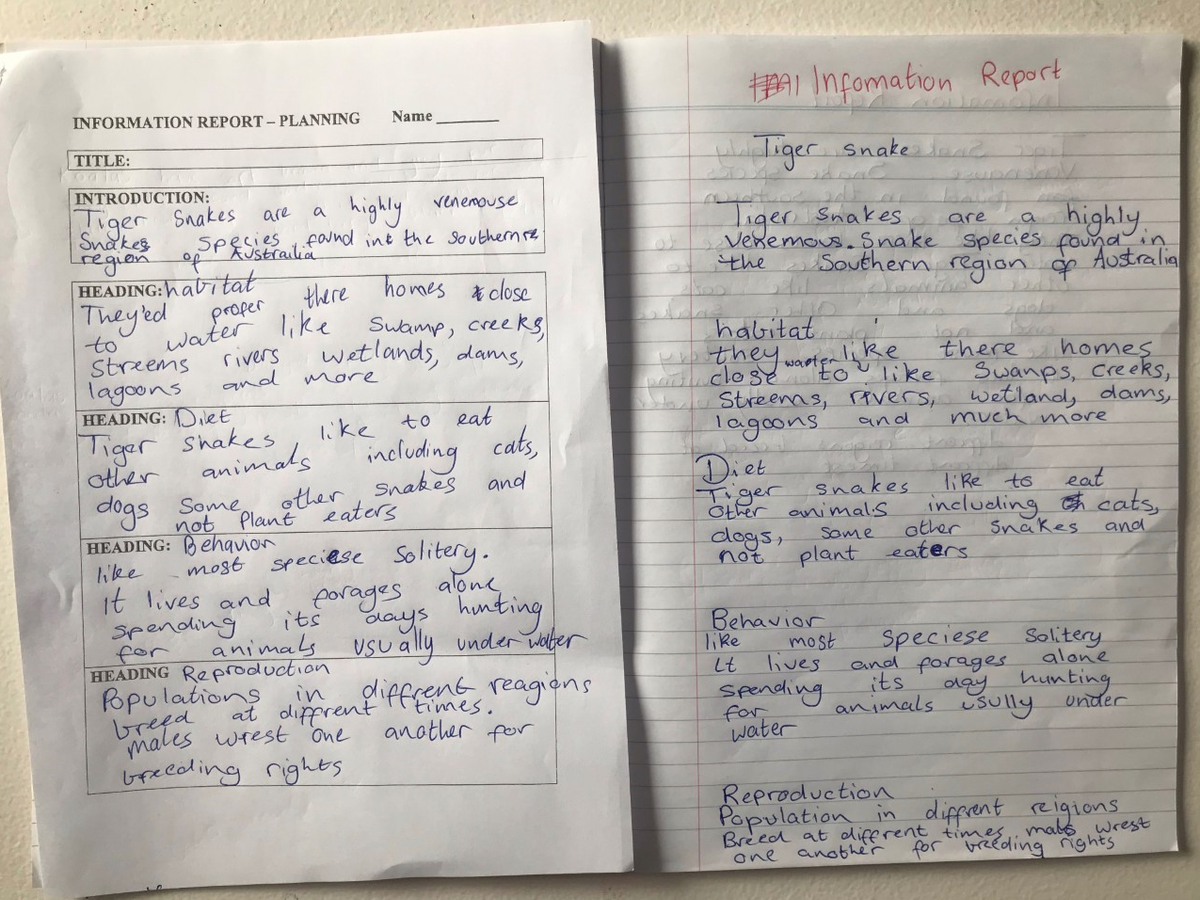 INFORMATION REPORT – PLANNING Name
TITLE:
INTRODUCTION:
Tiger Snakes are a highly venemouse
Snakes Species found in the Southern
region of Austrailia
HEADING: habitat
They'ed proper there homes close
to water like swamp, creeks,
Streems rivers wetlands, dams,
lagoons and more
HEADING: Diet
Tiger snakes like to eat
other animals including cats,
dogs some other snakes and
not Plant eaters
HEADING: Behavior
like most speciese Solitery.
It lives and forages alone
spending its days hunting
for animals usually under water
HEADING Reproduction
Populations in diffrent reagions
breed at different times.
males wrest one another for
breeding rights
Infomation Report
Tiger snake
Tiger Snakes are a highly
Venemous. Snake species found in
the Southern region of Australia
habitat
they like there homes
close to waater like Swanps, creeks,
Streems, rivers, wetland, dams,
lagoons and much more
Diet
Tiger snakes like to eat
other animals including cats,
dogs, some other snakes and
not plant eaters
Behavior
like most speciese Solitery
It lives and forages alone
spending its day hunting
for animals usully under
water
Reproduction
Population in diffrent reigions
Breed at diffrent times. wrest
one another for breeding rights